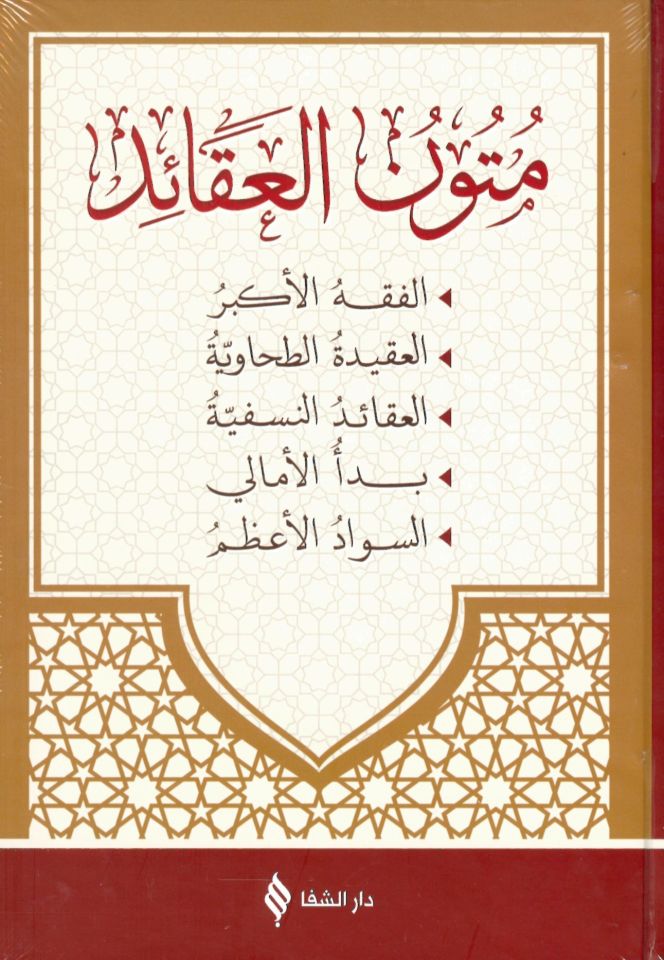 مُتُونُ العَقَائِدِ
الفقهُ الأكبرُ
العقيدةُ الطحاويّةُ
العقائدُ النسفيّةُ
بدأُ الأمالي
السوادُ الأعظمُ
دار الشفا